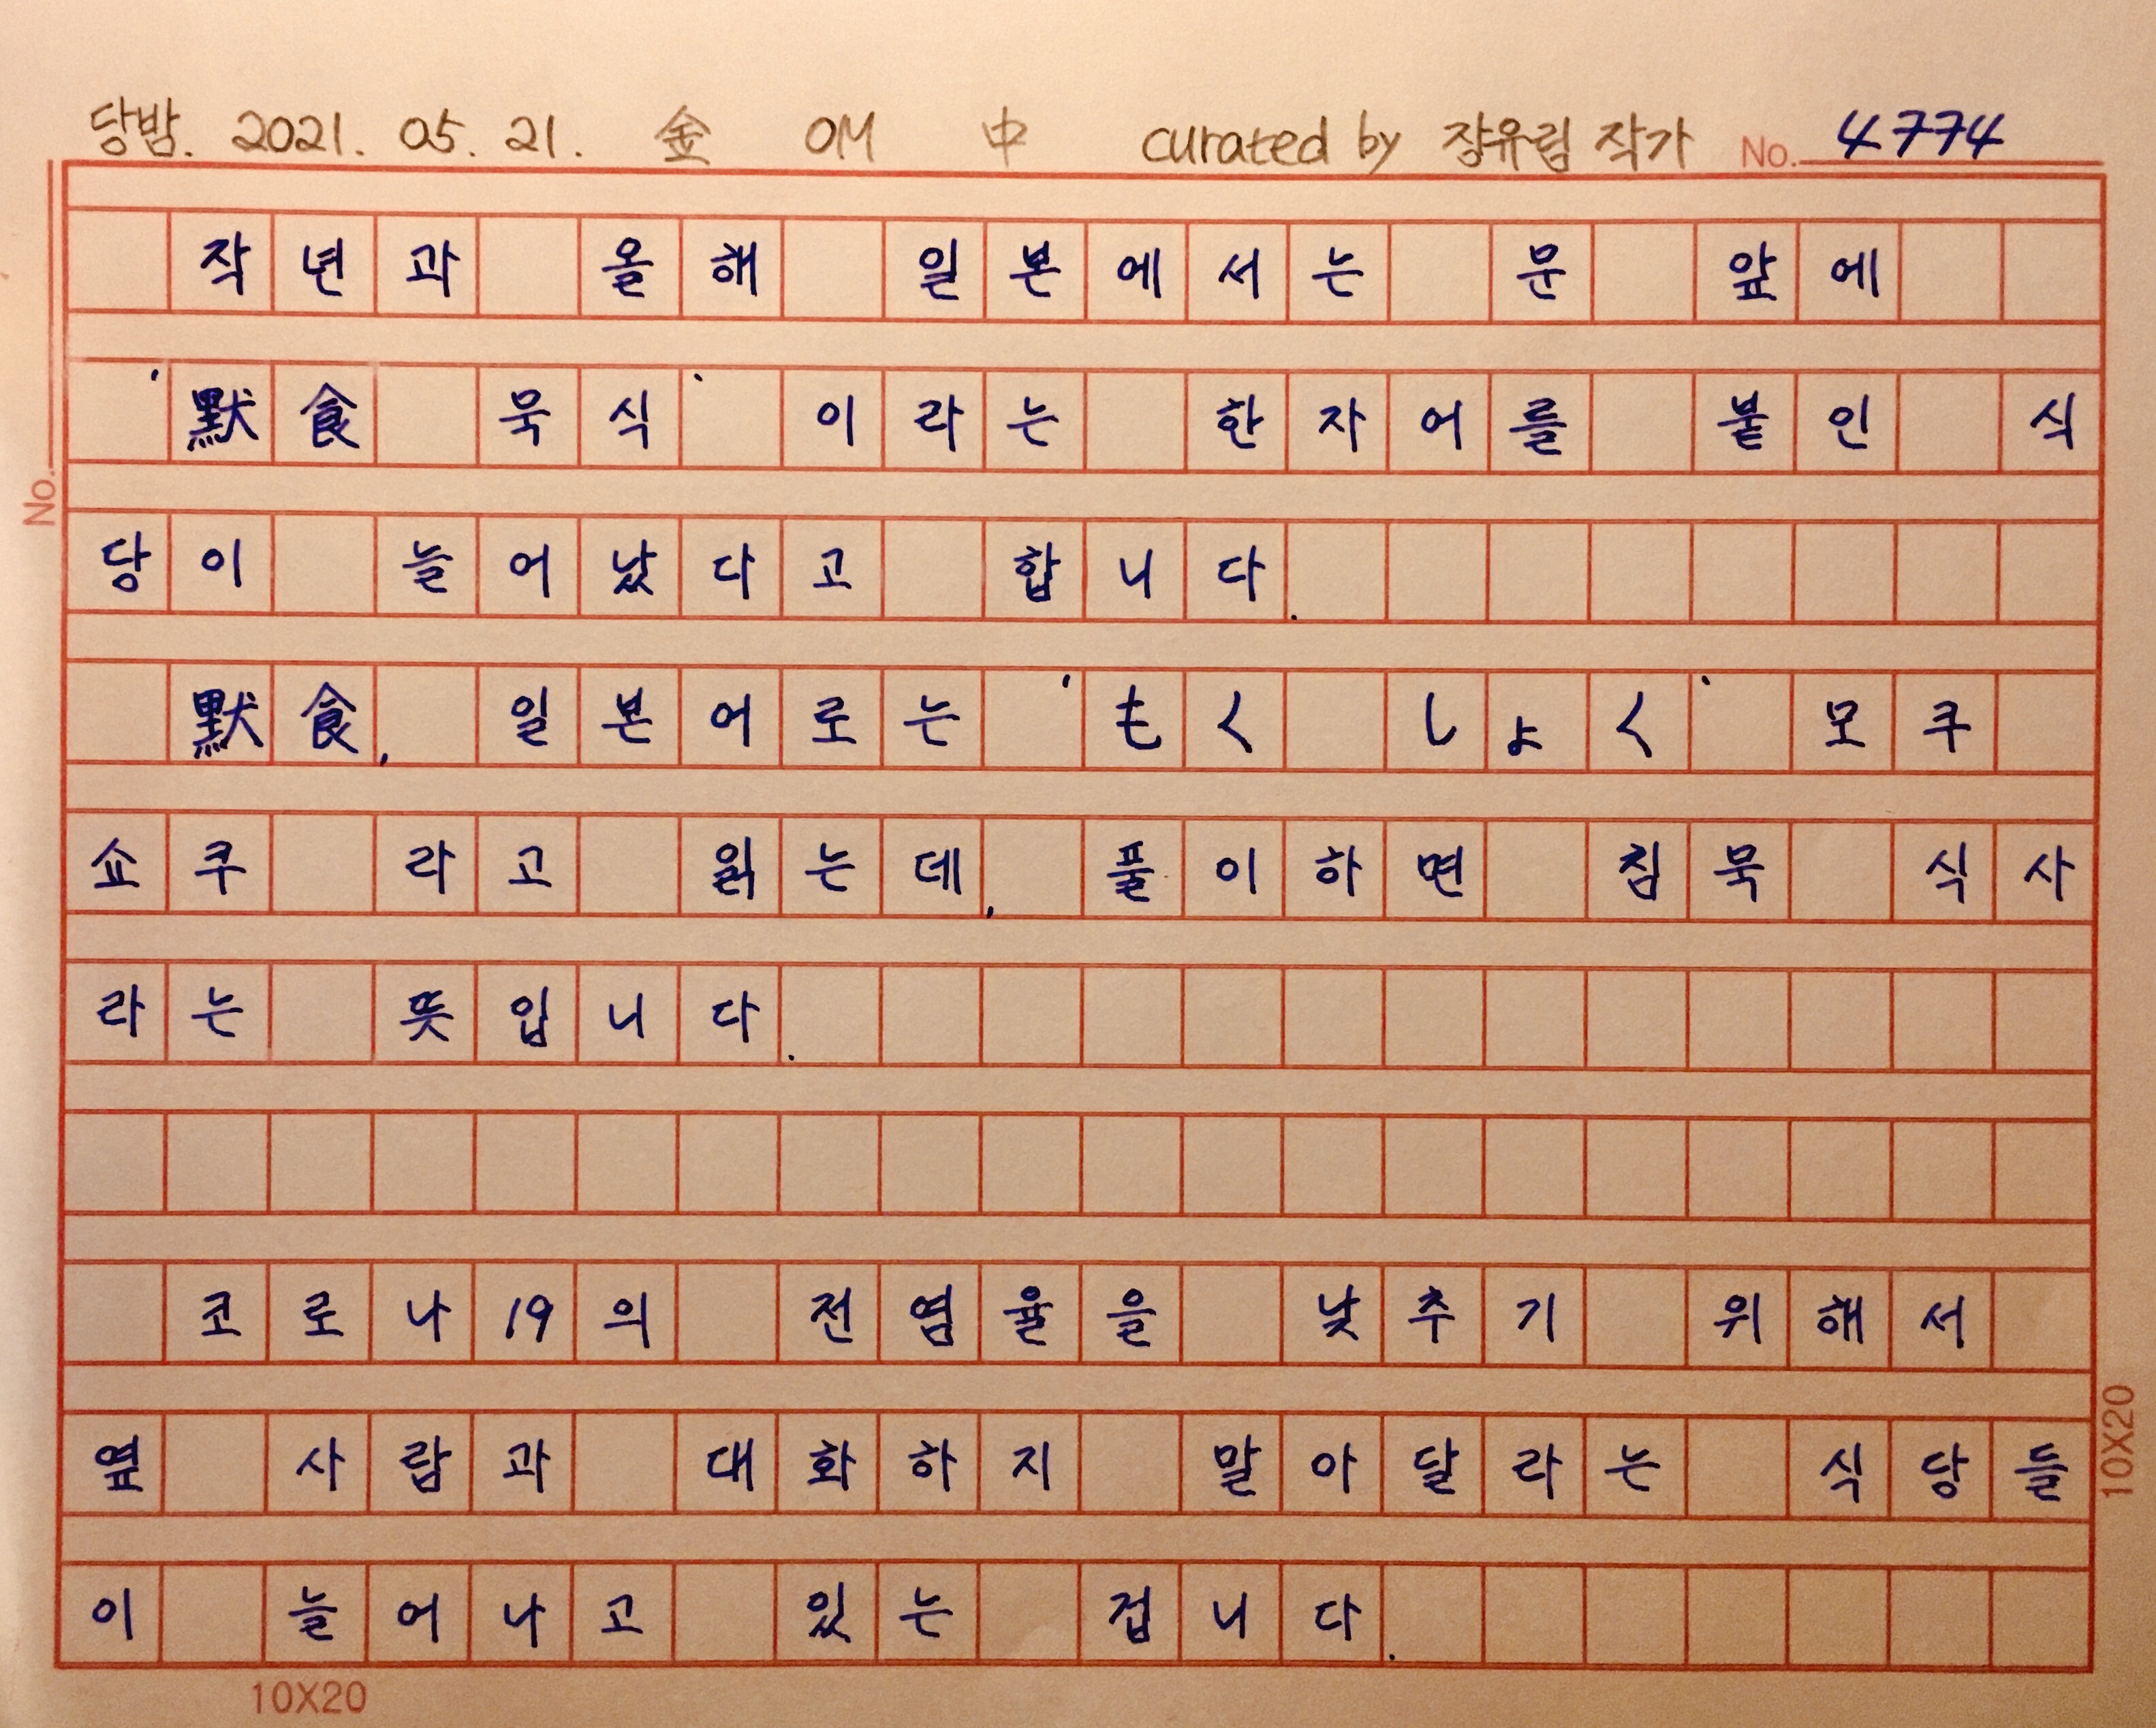 당밤. 2021. 05. 21. 金 OM 中 curated by 장유림 작가 No. 4774
작년과 올해 일본에서는 문 앞에
'默食 묵식' 이라는 한자어를 붙인 식
당이 늘어났다고 합니다.
默食, 일본어로는 'もく しょく' 모쿠
쇼쿠 라고 읽는데, 풀이하면 침묵 식사
라는 뜻입니다.
코로나19의 전염율을 낮추기 위해서
옆 사람과 대화하지 말아달라는 식당들
이 늘어나고 있는 겁니다.
No.
10X20
10X20